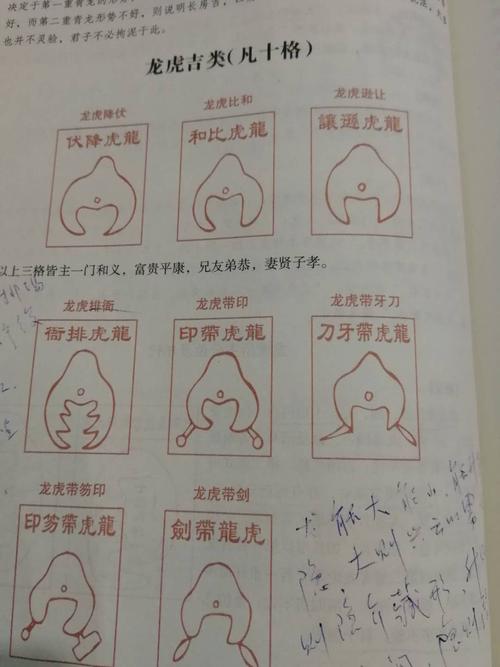 决定于第一重青龙的形势
好，而第二重青龙形势不好，则说明长房吉，
也并不灵验，君子不必拘泥于此。
龙虎吉类(凡十格)
龙虎降伏
龙虎比和
龙虎逊让
伏降虎龍
和比虎龍
讓遜虎龍
以上三格皆主一门和义，富贵平康，兄友弟恭，妻贤子孝。
龙虎排衙
龙虎带印
龙虎带牙刀
衙排虎龍
印帶虎龍
刀牙帶虎龍
龙虎带笏印
龙虎带剑
印笏帶虎龍
劍帶龍虎
龙能大能小
隐
大则兴云
则隐介藏形